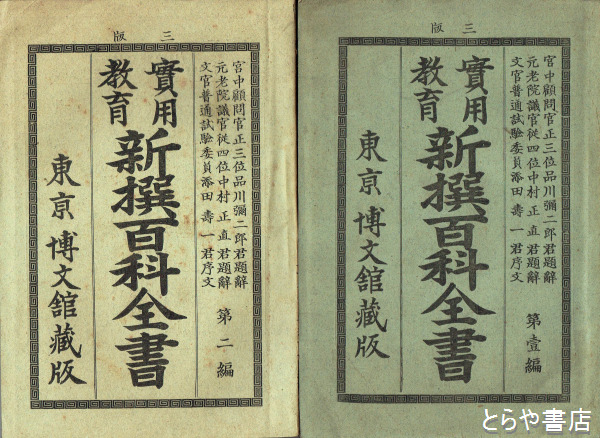 版三
宮中顧問官正三位品川彌二郎君題辭
元老院議官從四位中村正直君題辭
文官普通試驗委員添田壽一君序文
第二編
實用
教育
新撰百科全書
東京博文舘藏版
版三
宮中顧問官正三位品川彌二郎君題辭
元老院議官從四位中村正直君題辭
文官普通試驗委員添田壽一君序文
第壹編
實用
教育
新撰百科全書
東京博文舘藏版
とらや書店